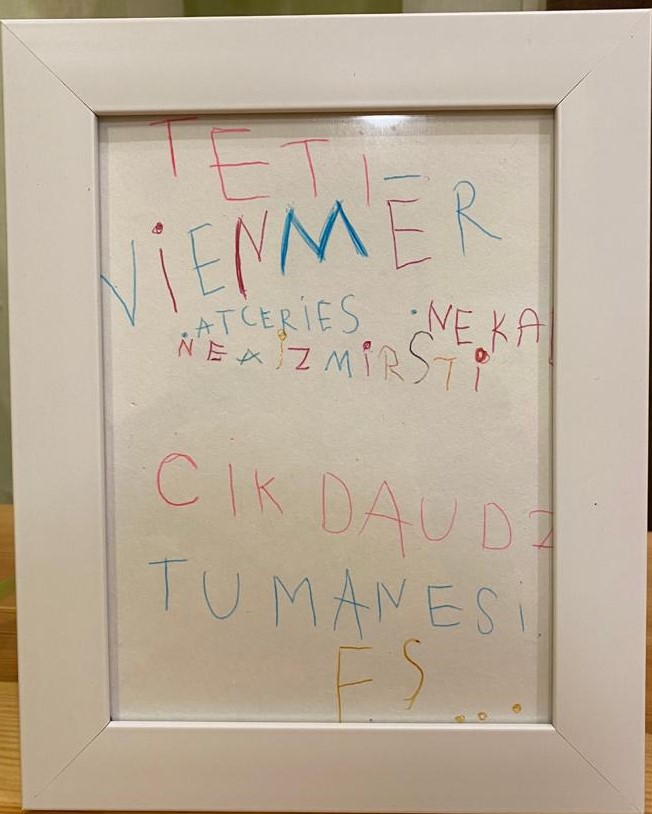 TETI
VIENMĒR
ATCERIES NEKA
NEAIZMIRSTI
CIK DAUDZ
TU MANESI
ES...